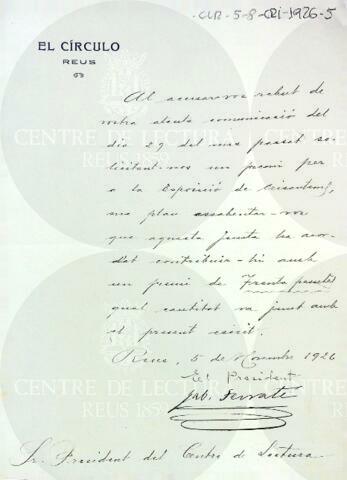 CLR-5-8-CRI-1926-5
EL CÍRCULO
REUS
Al acusar-vos rebut de
vostra atenta comunicació del
dia 29 del mes passat so-
licitant-nos un premi per
a la Exposició de Crisantems,
me plau assabentar-vos
que aquesta Junta ha acor-
dat contribuir-hi amb
un premi de Trenta pessetes
qual cantitat va junt amb
el present escrit.
Reus, 5 de Novembre 1926
El President
Ferraté
Sr. President del Centre de Lectura.
CENTRE DE LECTURA
REUS 1859
CENTRE DE LECTURA
REUS 1859